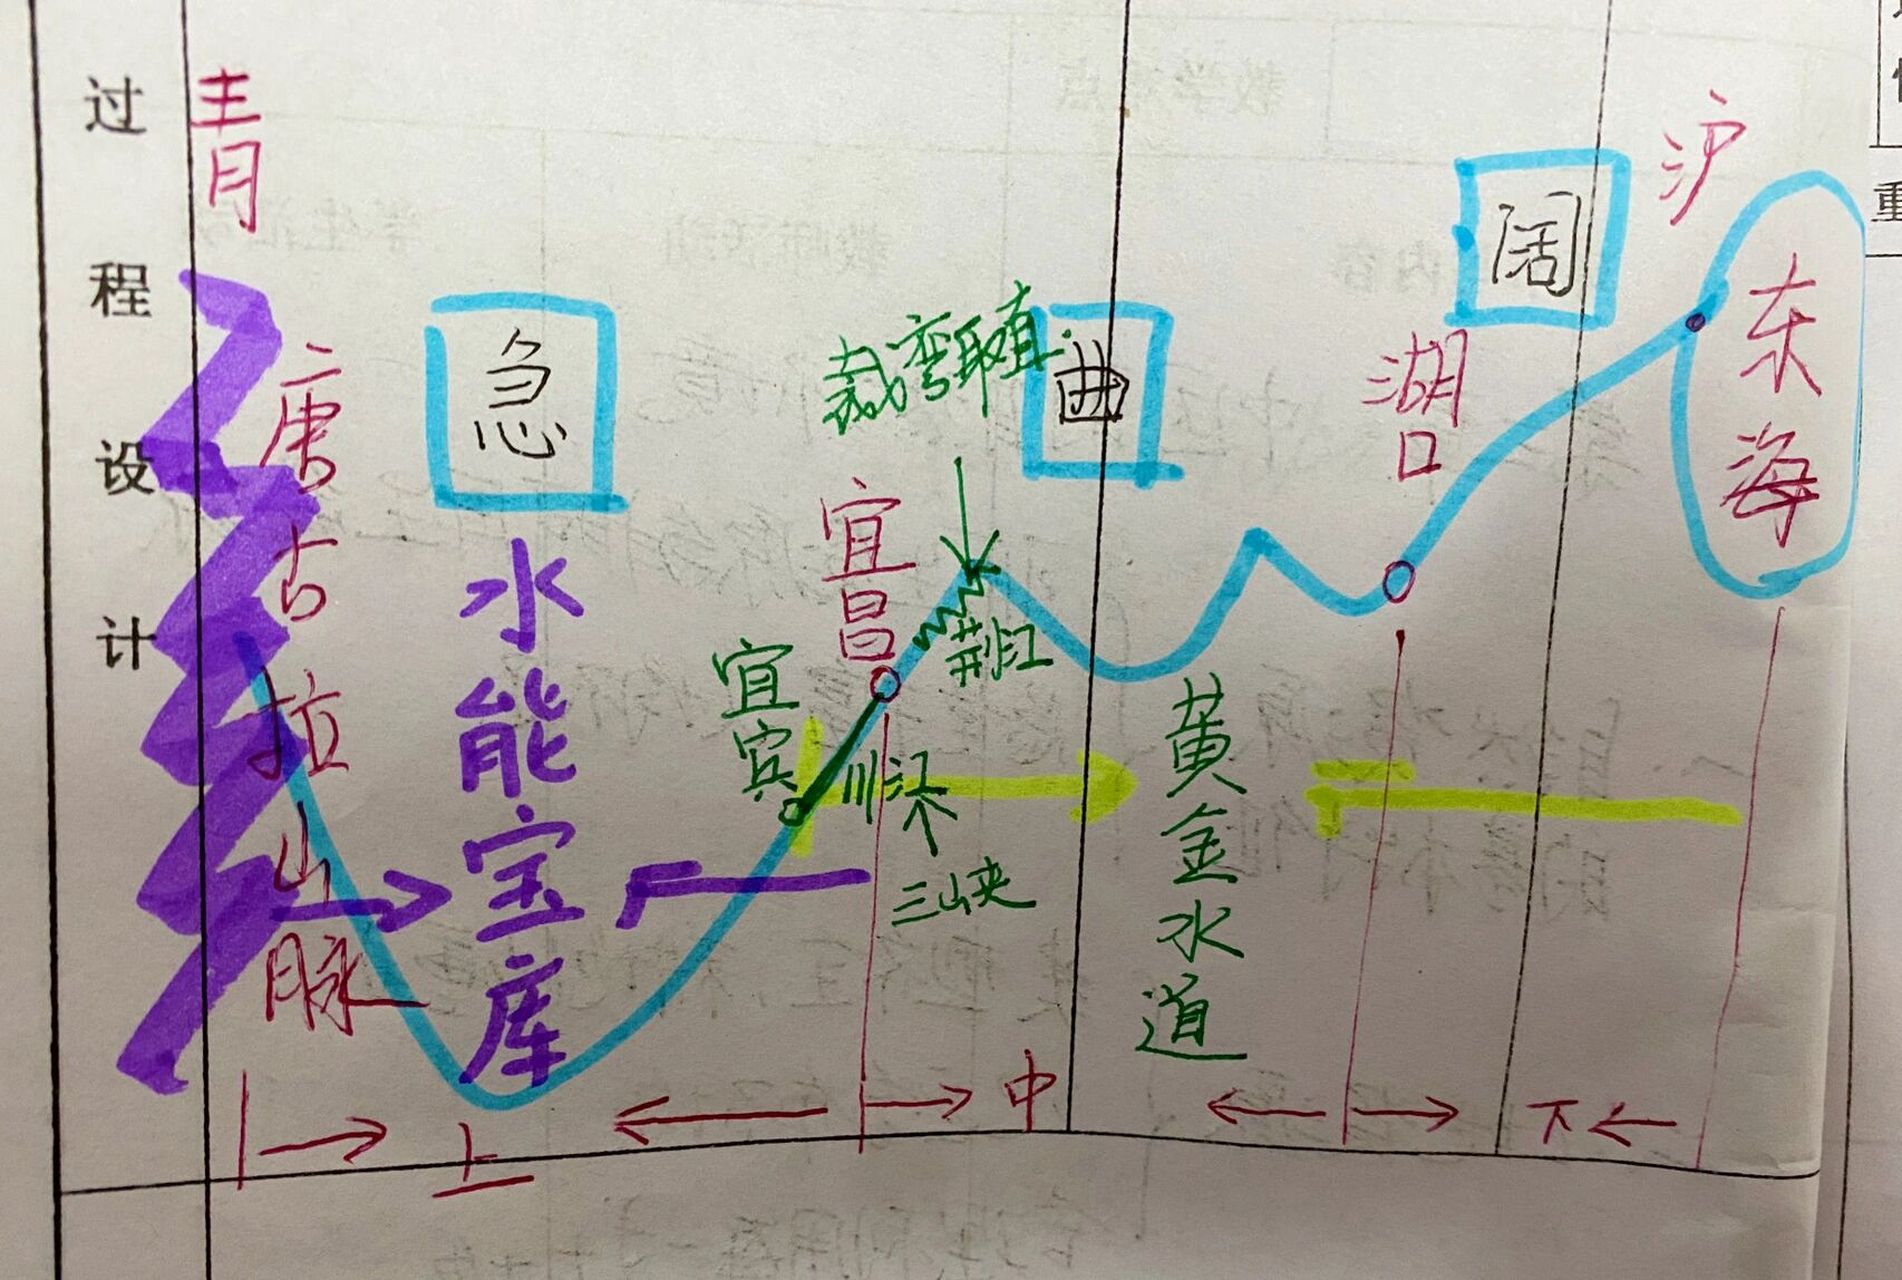 过程设计
青
唐古拉山脉
急
水能宝库
宜宾
宜昌
川江
三峡
裁弯取直
荆江
曲
黄金水道
湖口
阔
沪
东海
上
中
下
重